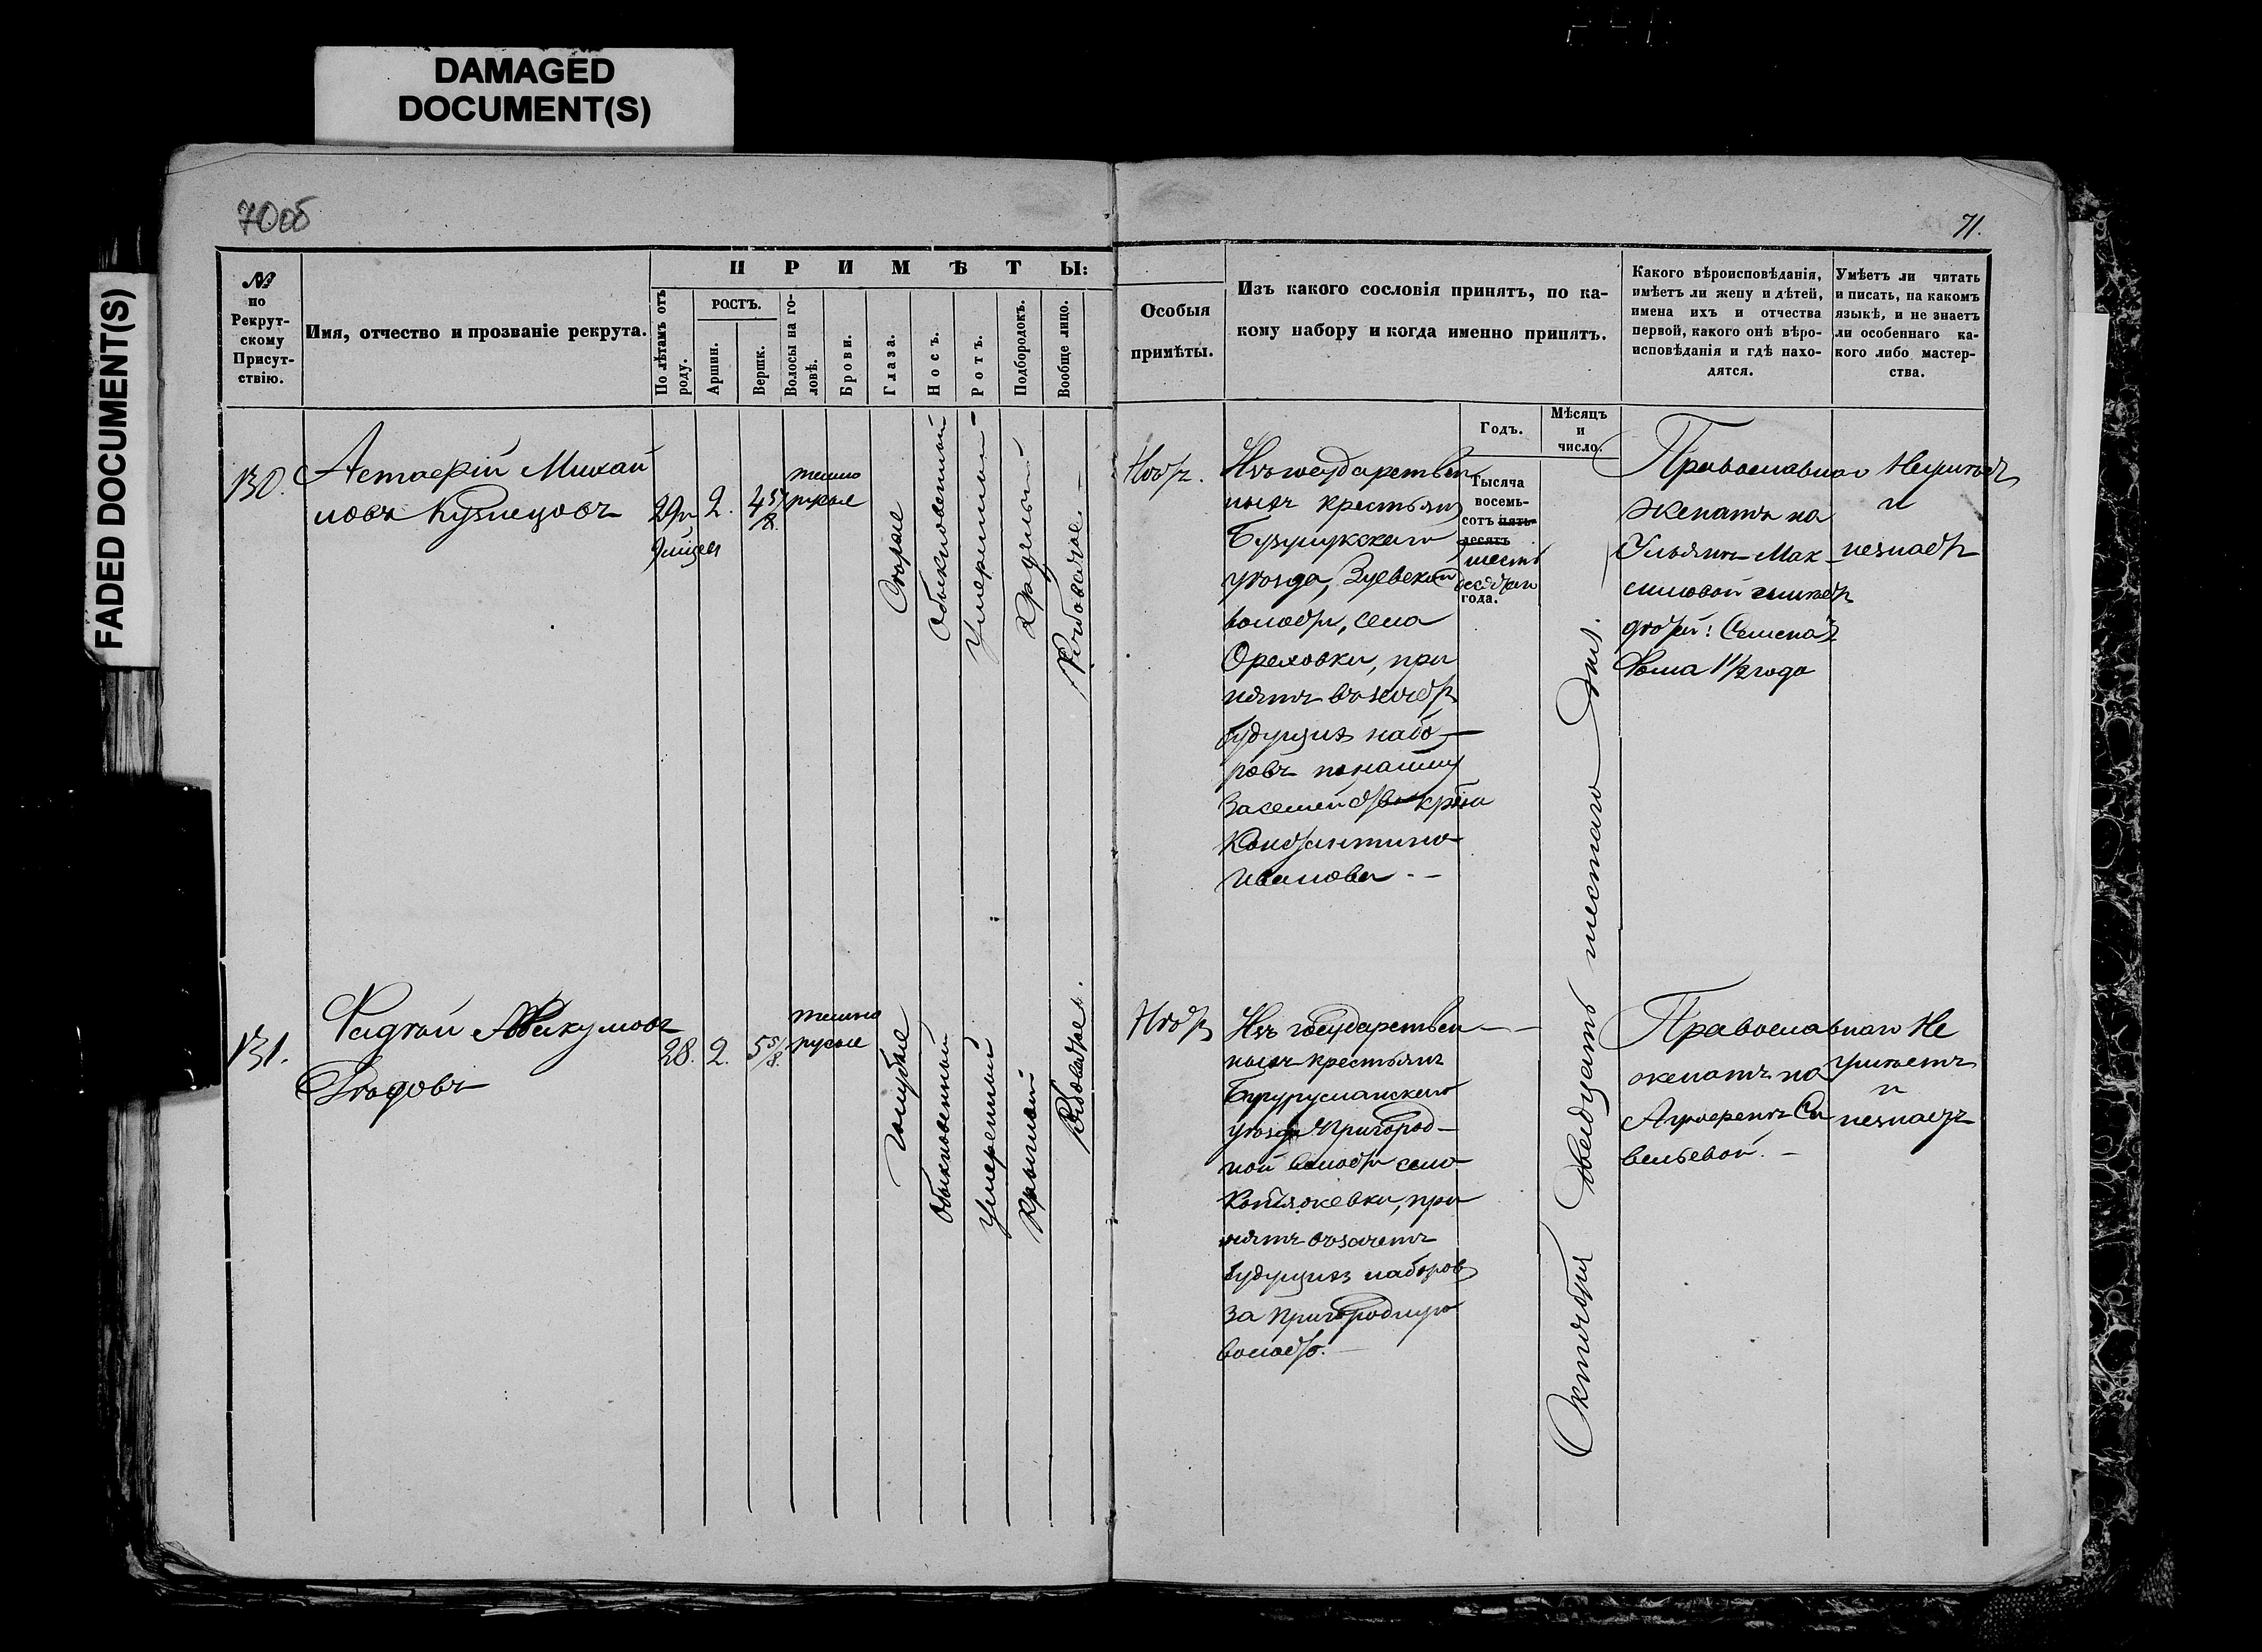 DAMAGED
DOCUMENT(S)
FADED DOCUMENT(S)
70об
71.
№
по
Рекрут-
скому
Присут-
ствію.
Имя, отчество и прозваніе рекрута.
ПРИМѢТЫ:
По лѣтамъ отъ
роду.
РОСТЪ.
Аршин.
Вершк.
Волосы на го-
ловѣ.
Брови.
Глаза.
Носъ.
Ротъ.
Подбородокъ.
Вообще лицо.
Особыя
примѣты.
Изъ какого сословія принятъ, по ка-
кому набору и когда именно принятъ.
Какого вѣроисповѣданія,
имѣетъ ли жену и дѣтей,
имена ихъ и отчества
первой, какого онѣ вѣро-
исповѣданія и гдѣ нахо-
дятся.
Умѣетъ ли читать
и писать, на какомъ
языкѣ, и не знаетъ
ли особеннаго ка-
кого либо мастер-
ства.
Годъ.
Мѣсяцъ
и
число.
130.
Астаерій Михай
ловъ Кузнецовъ
29
2.
4 5/8
темно
русые
Обыкновенный
Умеренный
Круглый
Рябоватое.
Нѣтъ.
Изъ государствен
ныхъ крестьянъ
Бузулукскаго
уѣзда, Зуевской
волости, села
Ореховки, при
нятъ въ зачетъ
будущихъ набо-
ровъ по найму
за семейство кр-на
Константина
Иванова. -
Тысяча
восемь-
сотъ пять-
десятъ
шесть
десятаго
года.
Октября двадцать шестаго дня.
Православнаго
женатъ на
Ульянѣ Мак-
симовой имѣетъ
дѣтей: Семена
Фома 1 1/2 года
Неумѣетъ
и
незнаетъ
131.
Фадѣй Аввакумовъ
Дѣдовъ
28.
2.
5 5/8.
темно
русые
Голубые
Обыкновенный
Умеренный
Круглый
Рябоватое.
Нѣтъ
Изъ государствен-
ныхъ крестьянъ
Бугурусланскаго
уѣзда Пригород-
ной волости село
при
нятъ въ зачетъ
будущихъ наборовъ
за Пригородную
волость.
Православнаго
женатъ на
Аграфенѣ Са
вельевой. -
Не
умѣетъ
и
незнаетъ